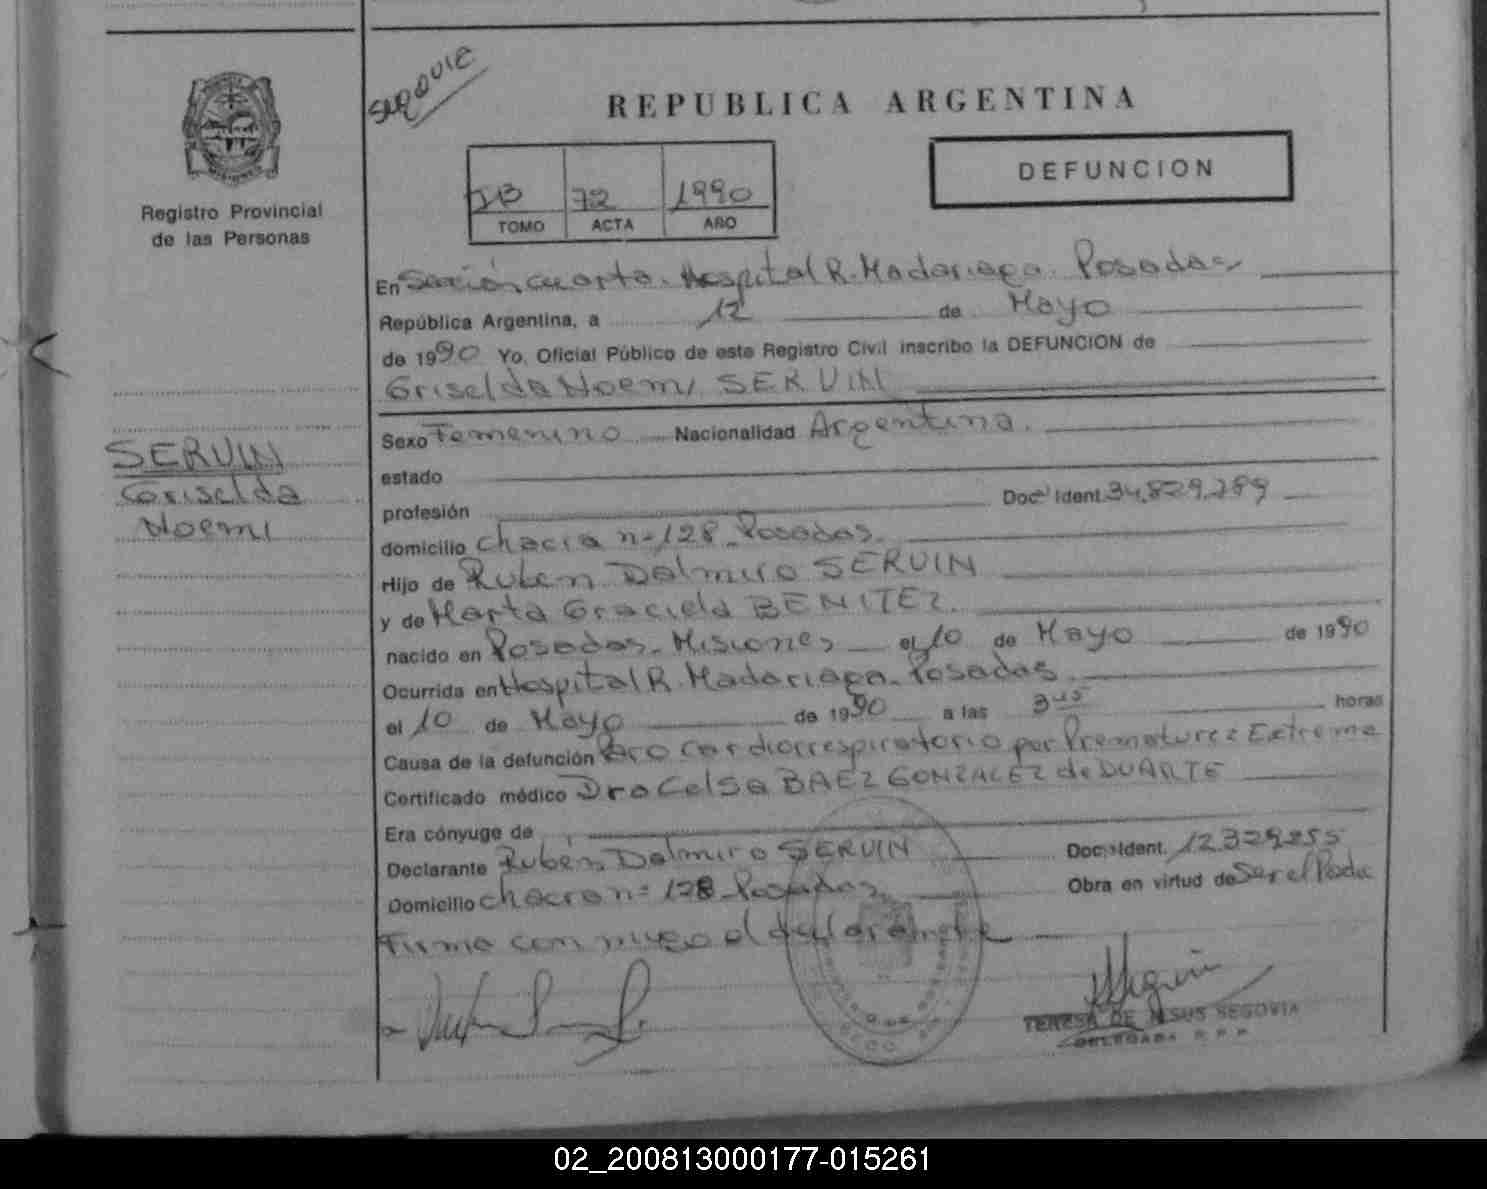 REPUBLICA ARGENTINA
DEFUNCION
Registro Provincial
de las Personas
72 1990
TOMO ACTA AÑO
En Sección Cuarta. Hospital R. Madariaga. Posadas
República Argentina, a 12 de Mayo
de 1990 Yo, Oficial Público de este Registro Civil inscribo la DEFUNCION de
Griselda Noemi SERVIN
SERVIN
Griselda
Noemi
Sexo Femenino Nacionalidad Argentina.
estado
profesión Doc. Ident. 34.829.289
domicilio chacra nº 128. Posadas.
Hijo de Rubén Dalmiro SERVIN
y de Marta Graciela BENITEZ.
nacido en Posadas. Misiones el 10 de Mayo de 1990
Ocurrida en Hospital R. Madariaga. Posadas.
el 10 de Mayo de 1990 a las 3 45 horas
Causa de la defunción Paro cardiorrespiratorio por Prematurez Extrema
Certificado médico Dra Celsa BAEZ GONZALEZ de DUARTE
Era cónyuge de
Declarante Rubén Dalmiro SERVIN Doc. Ident. 12.329.255
Domicilio chacra nº 128. Posadas Obra en virtud de Ser el Padre
Firma con migo el declarante
TERESA DE JESUS SEGOVIA
DELEGADA R.P.P.
02_200813000177-015261